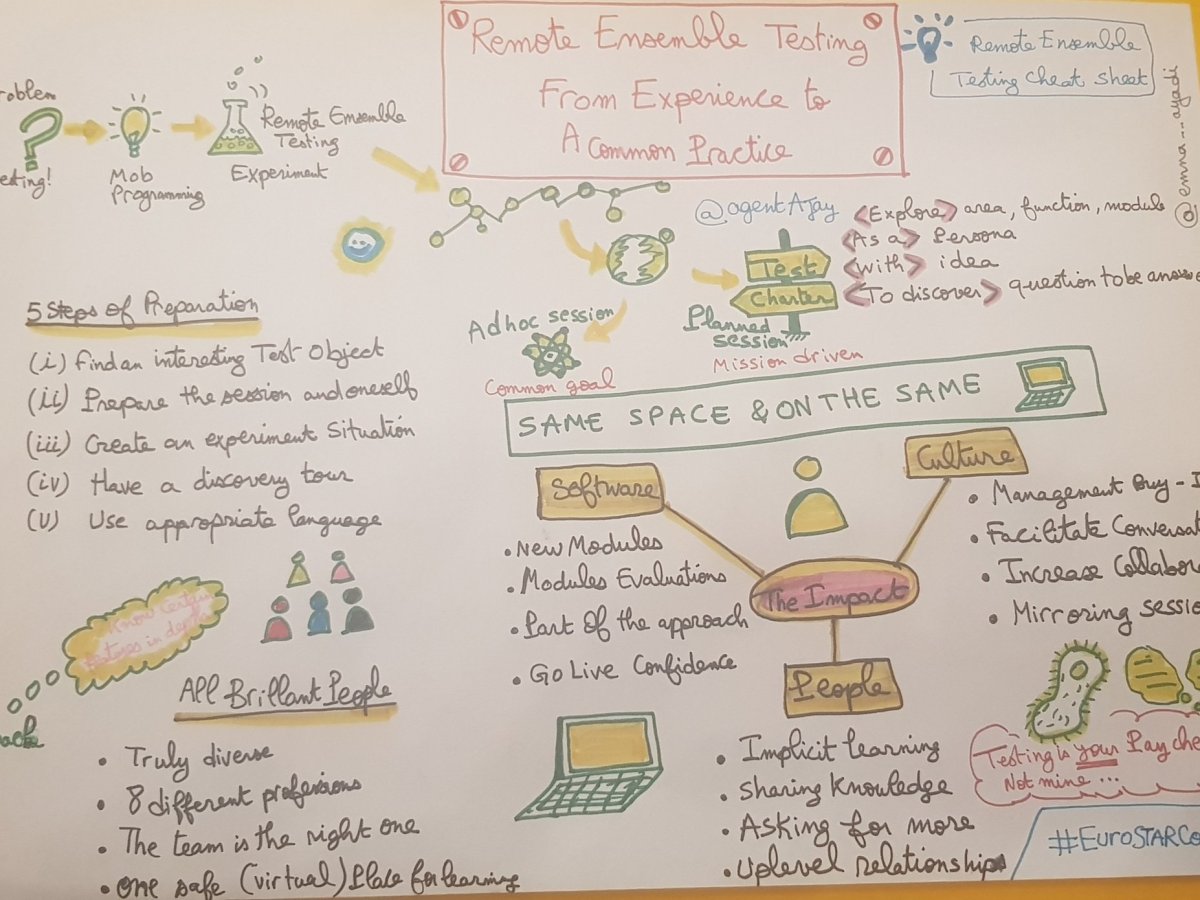 Remote Ensemble Testing
From Experience to
A Common Practice
Remote Ensemble
Testing Cheat Sheet
@emna__ayadi
roblem
esting!
Mob
Programming
Remote Ensemble
Testing
Experiment
@agentAjay
Test
Charter
<Explore> area, function, module
<As a> Persona
<with> idea
<To discover> question to be answe
Adhoc session
Common goal
Planned
session
Mission driven
5 Steps of Preparation
(i) Find an interesting Test Object
(ii) Prepare the session and oneself
(iii) Create an experiment Situation
(iv) Have a discovery tour
(v) Use appropriate language
SAME SPACE & ON THE SAME
Software
• New Modules
• Modules Evaluations
• Part Of the approach
• Go Live Confidence
The Impact
Culture
• Management Buy-I
• Facilitate Conversat
• Increase Collabor
• Mirroring sessio
People
• Implicit learning
• Sharing Knowledge
• Asking for more
• Uplevel relationships
Know Certain
features in depth
All Brillant People
• Truly diverse
• 8 different professions
• The team is the right one
• One safe (virtual) Place for learning
Testing is your Pay che
Not mine...
#EuroSTARCo